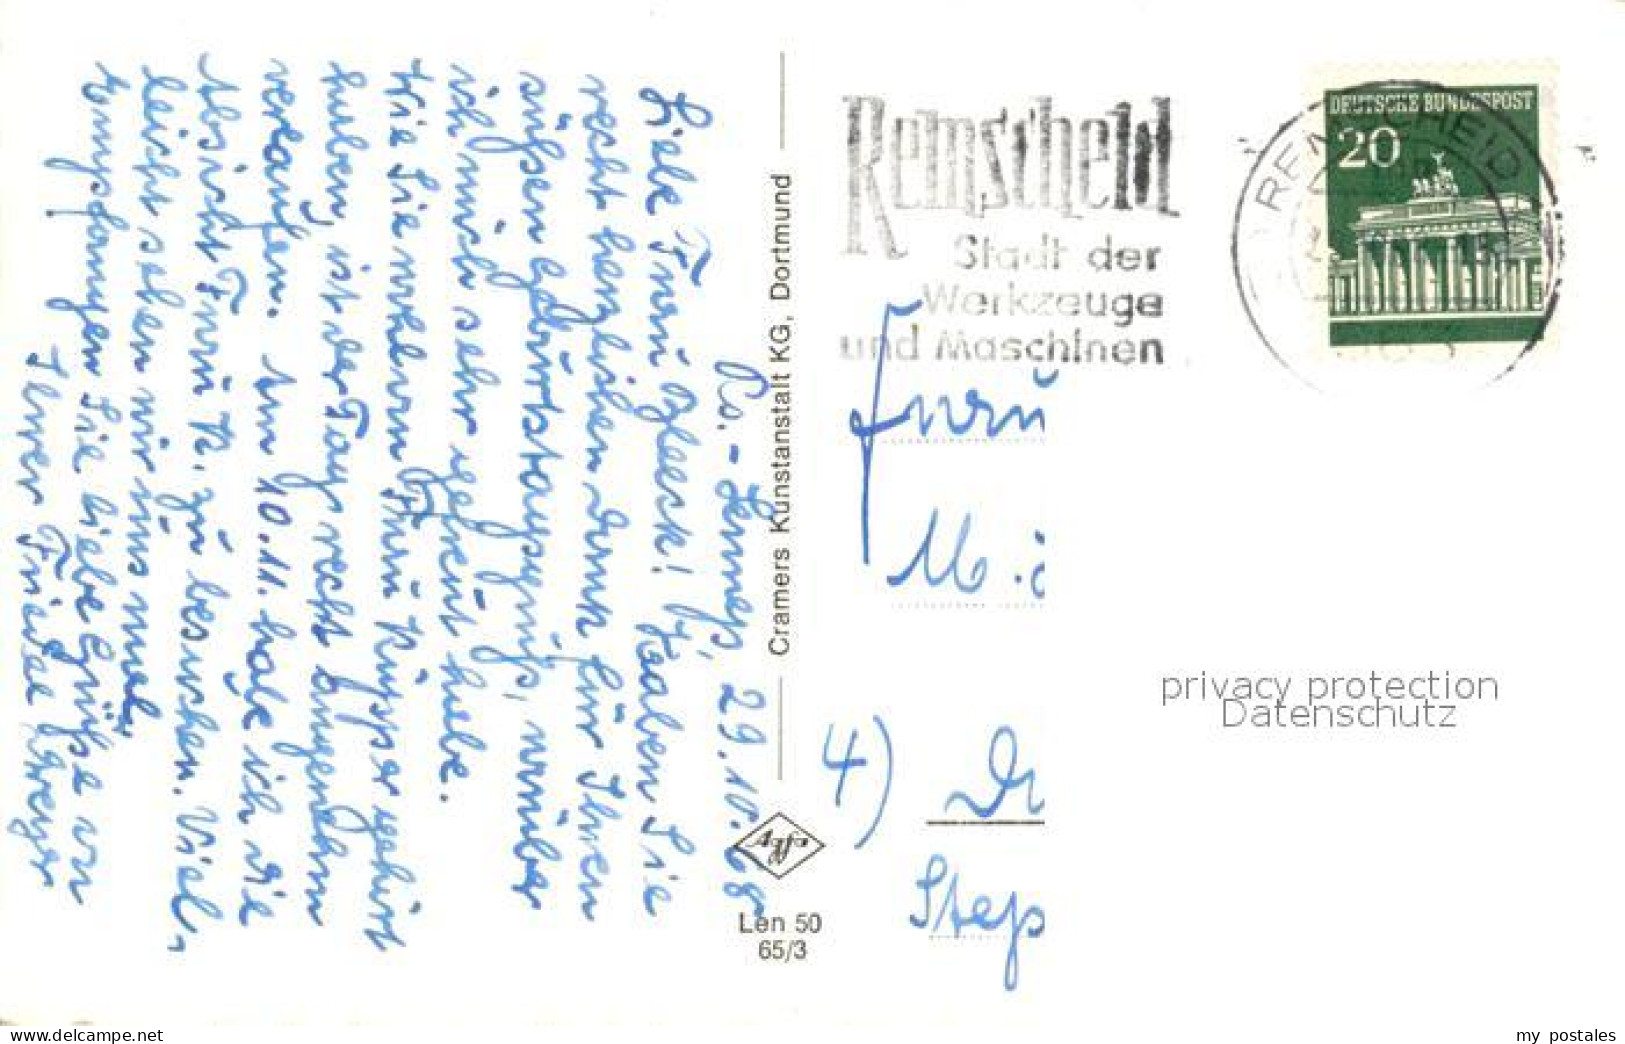 Rs.-Lennep, 29.10.68
Liebe Frau Bleeck! Haben Sie
recht herzlichen Dank für Ihren
süßen Geburtstagsgruß, worüber
ich mich sehr gefreut habe.
Wie Sie von Frau Küpper gehört
haben, ist der Tag recht angenehm
verlaufen. Am 10.11. habe ich die
Absicht Frau K. zu besuchen. Viel-
leicht sehen wir uns mal.
Empfangen Sie liebe Grüße von
Ihrer Friedel
Cramers Kunstanstalt KG, Dortmund
Len 50
65/3
Remscheid
Stadt der
Werkzeuge
und Maschinen
REMSCHEID
DEUTSCHE BUNDESPOST
20
Frau
4)
Step
privacy protection
Datenschutz
www.ansichtskartencenter.com
my postales